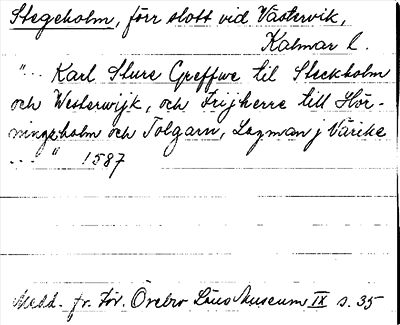 Stegeholm, förr slott vid Västervik,
Kalmar l.
"... Karl Sture Greffwe til Steckholm
och Westerwijk, och Frijherre till Hör-
ningsholm och Tolgarn, Lagman j Värike
... " 1587
Medd. fr. För. Örebro Läns Museum IX s. 35